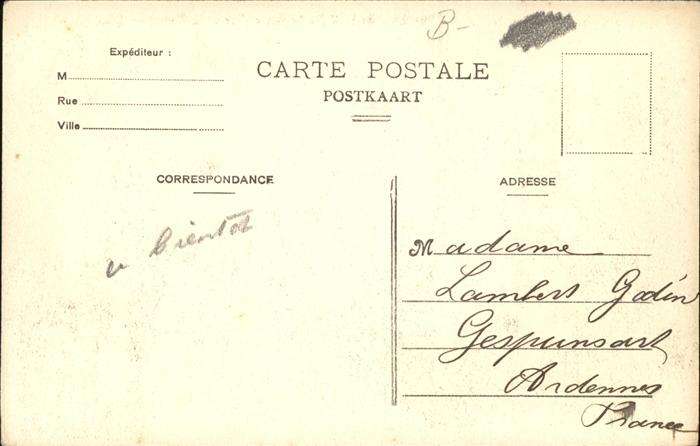 B-
Expéditeur :
M
Rue
Ville
CARTE POSTALE
POSTKAART
CORRESPONDANCE
a bientot
ADRESSE
Madame
Lambert Godin
Gespunsart
Ardennes
France